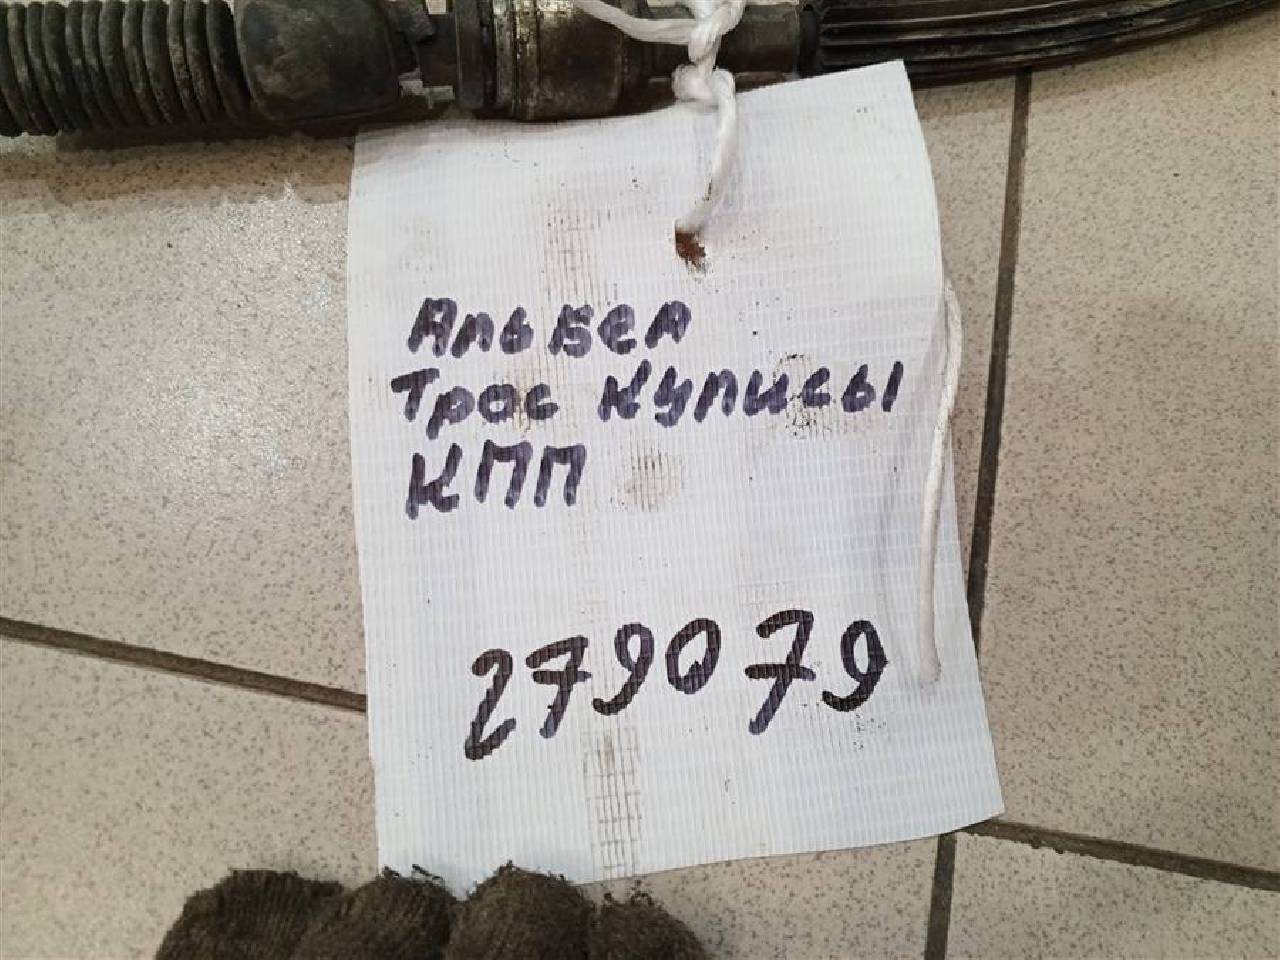 Альбея
Трос Кулисы
КПП
279079